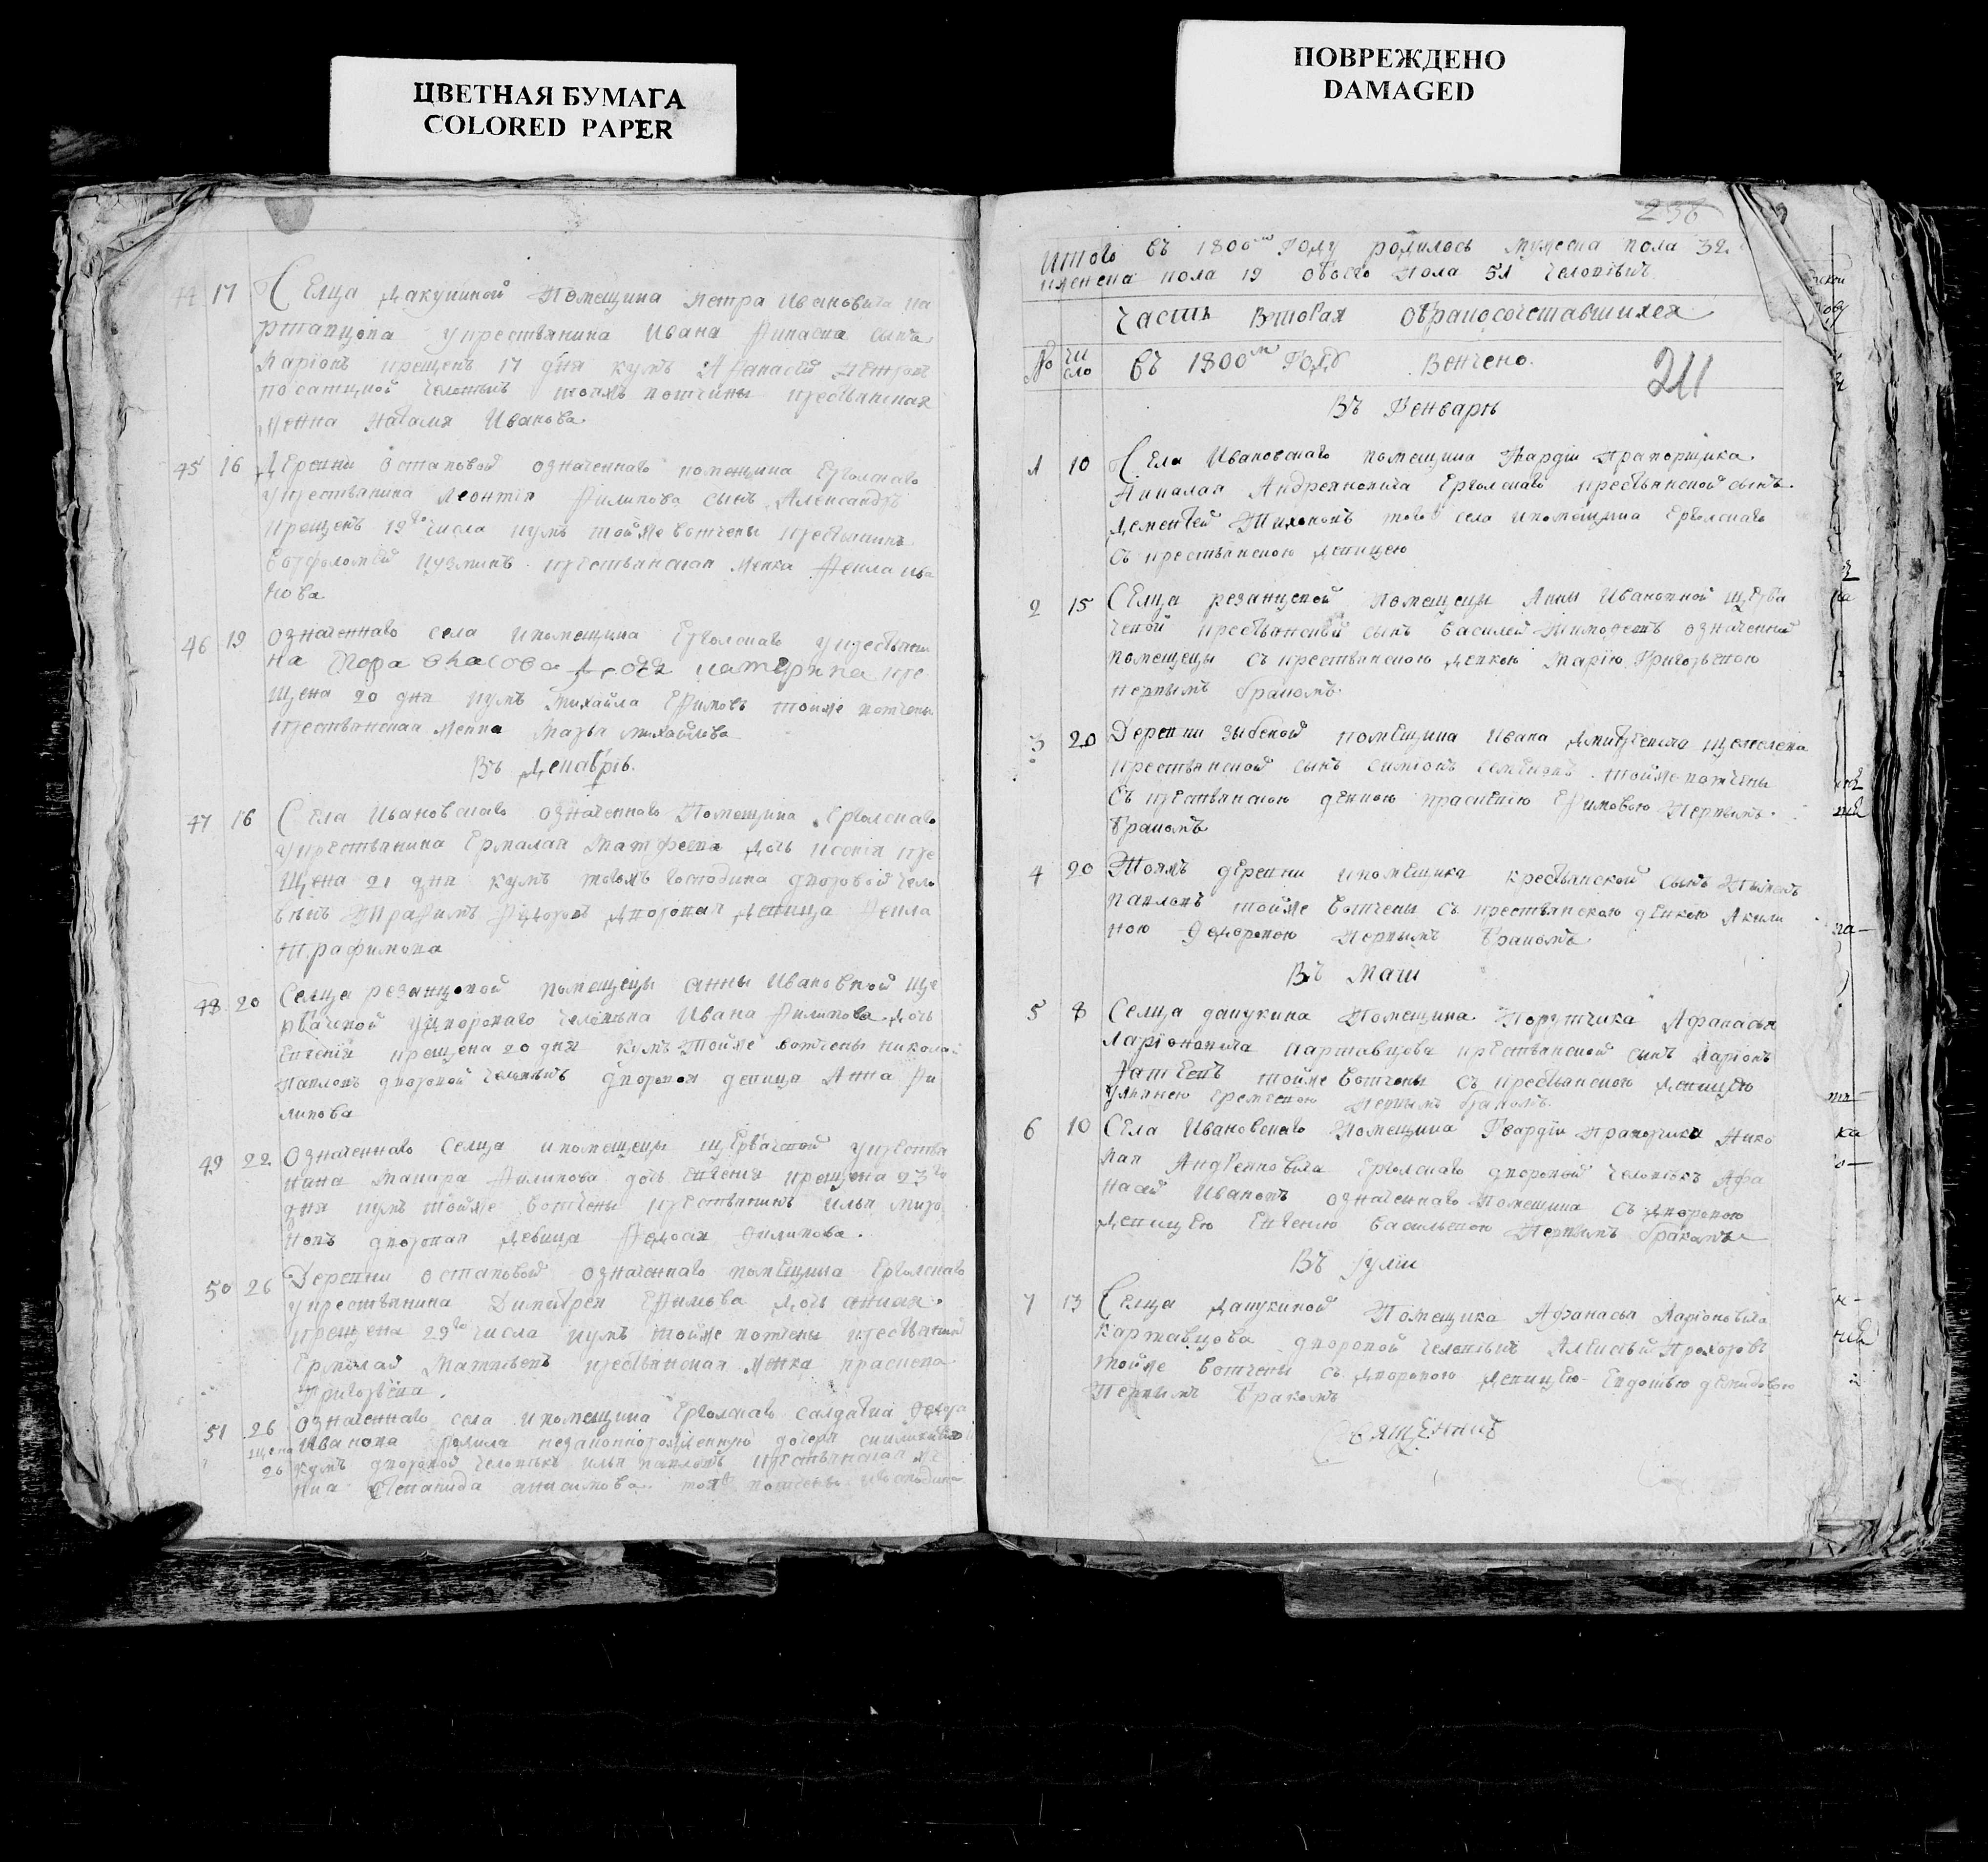 ЦВЕТНАЯ БУМАГА
COLORED PAPER
ПОВРЕЖДЕНО
DAMAGED
44 17 Селца Дакукиной Помещика Петра Ивановича Ка
ртавцова у крестьянина Ивана сынъ
Ларионъ крещенъ 17 дня кумъ Афанасей Петровъ
человекъ тояжъ вотчины крестьянская
женка Наталия Иванова
45 16 Деревни Остаповой означеннаго помещика Ерголскаго
у крестьянина Леонтия Филипова сынъ Александръ
крещенъ 19го числа кумъ тойже вотчены крестьянинъ
Козминъ крестьянская женка Фекла Ива
нова
46 19 Означеннаго села и помещика Ерголскаго у крестьяни
на Власова дочь Катерина кре
щена 20 дня кумъ Михайла Ефимовъ тойже вотчены
крестьянская женка Марья Михайлова
Въ Декабрѣ
47 16 Села Ивановскаго означеннаго Помещика Ерголскаго
у крестьянина Ермалая Матфеева дочь Ксения кре
щена 21 дня кумъ тогожъ господина дворовой чело
векъ Трафимъ Федоровъ дворовая девица Фекла
Трафимова
48 20 Селца резанцовой помещецы Анны Ивановной Ще
рбачевой у двороваго человека Ивана Филипова дочь
Евгения крещена 20 дня кумъ тойже вотчены Николай
Павловъ дворовой человекъ дворовая девица Анна Фи
липова
49 22 Означеннаго селца и помещецы Щербачевой у крестья
нина Макара Филипова дочь Евгения крещена 23го
дня кумъ тойже вотчены крестьянинъ Илья Миро
новъ дворовая девица Федосия Филипова.
50 26 Деревни Остаповой означеннаго помещика Ерголскаго
у крестьянина Димитрея Ефимова дочь
крещена 29го числа кумъ тойже вотчены крестьянинъ
Ермолай Матвеевъ крестьянская женка Прасковя
Григорьева.
51 26 Означеннаго села и помещика Ерголскаго салдатка Федора
Иванова родила незаконнорожденную дочерь
26 кумъ дворовой человекъ Илья Павловъ крестьянская же
нка Степанида Анисимова тояж вотчены господина
236
Итого въ 1800м Году родилось мужеска пола 32
женска пола 19 обоего пола 51 человекъ
Часть вторая о бракосочетавшихся
№ Чи
сло Въ 1800м Году Венчено. 211
Въ Генваре
1 10 Села Ивановскаго помещика Гвардии Прапорщика
Николая Андреяновича Ерголскаго крестьянской сынъ
Дементей Тихоновъ того села и помещика Ерголскаго
съ крестьянскою девицею
2 15 Селца резанцевой помещецы Анны Ивановной Щерба
чевой крестьянской сынъ Василей Тимофеевъ означенной
помещецы съ крестьянскою девкою Мариею Григорьевою
первымъ бракомъ
3 20 Деревни Зыбеной помещика Ивана
крестьянской сынъ Симионъ Семеновъ тойже вотчены
съ крестьянскою девкою Праскевиею Ефимовою первымъ
бракомъ
4 20 Тояжъ деревни и помещика крестьянской сынъ Пименъ
Павловъ тойже вотчены съ крестьянскою девкою Акили
ною Федоровою первымъ бракомъ
Въ Маи
5 8 Селца дакукина Помещика Порутчика Афанасья
Ларионовича Картавцова крестьянской сынъ Ларионъ
Фатеевъ тойже вотчены съ крестьянскою девицею
Ульянею Еремеевою первымъ бракомъ
6 10 Села Ивановскаго Помещика Гвардии Прапорщика Нико
лая Андреяновича Ерголскаго дворовой человекъ Афа
насей Ивановъ означеннаго Помещика съ дворовою
девицею Евгениею Васильевою первымъ бракомъ
Въ Iулии
7 13 Селца Дакукиной Помещика Афанасья Ларионовича
Картавцова дворовой человекъ Алексей Прохоровъ
тойже вотчены съ дворовою девицею Евдокиею Демидовою
Первымъ бракомъ
Священникъ